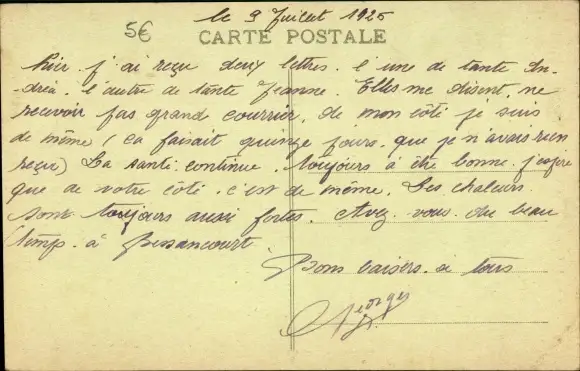 le 9 Juillet 1925
5€
CARTE POSTALE
Hier j'ai reçu deux lettres. l'une de tante An-
dréa, l'autre de tante Jeanne. Elles me disent, ne
recevoir pas grand courrier, de mon côté je suis
de même (ça faisait quinze jours que je n'avais rien
reçu) La santé continue toujours à être bonne. j'espère
que de votre côté c'est de même. Les chaleurs
sont toujours aussi fortes. Avez vous du beau
temps à Bessancourt.
Bons baisers à tous
Georges